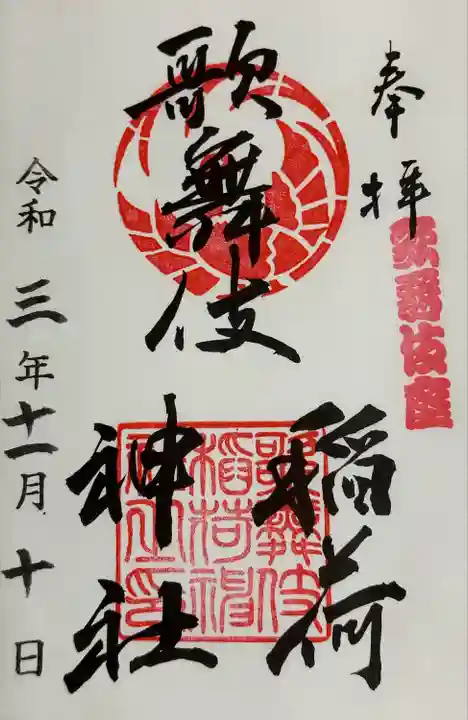 奉拝
歌舞伎座
歌舞伎
稲荷
神社
歌舞伎
稲荷神
社之印
令和三年十一月十日